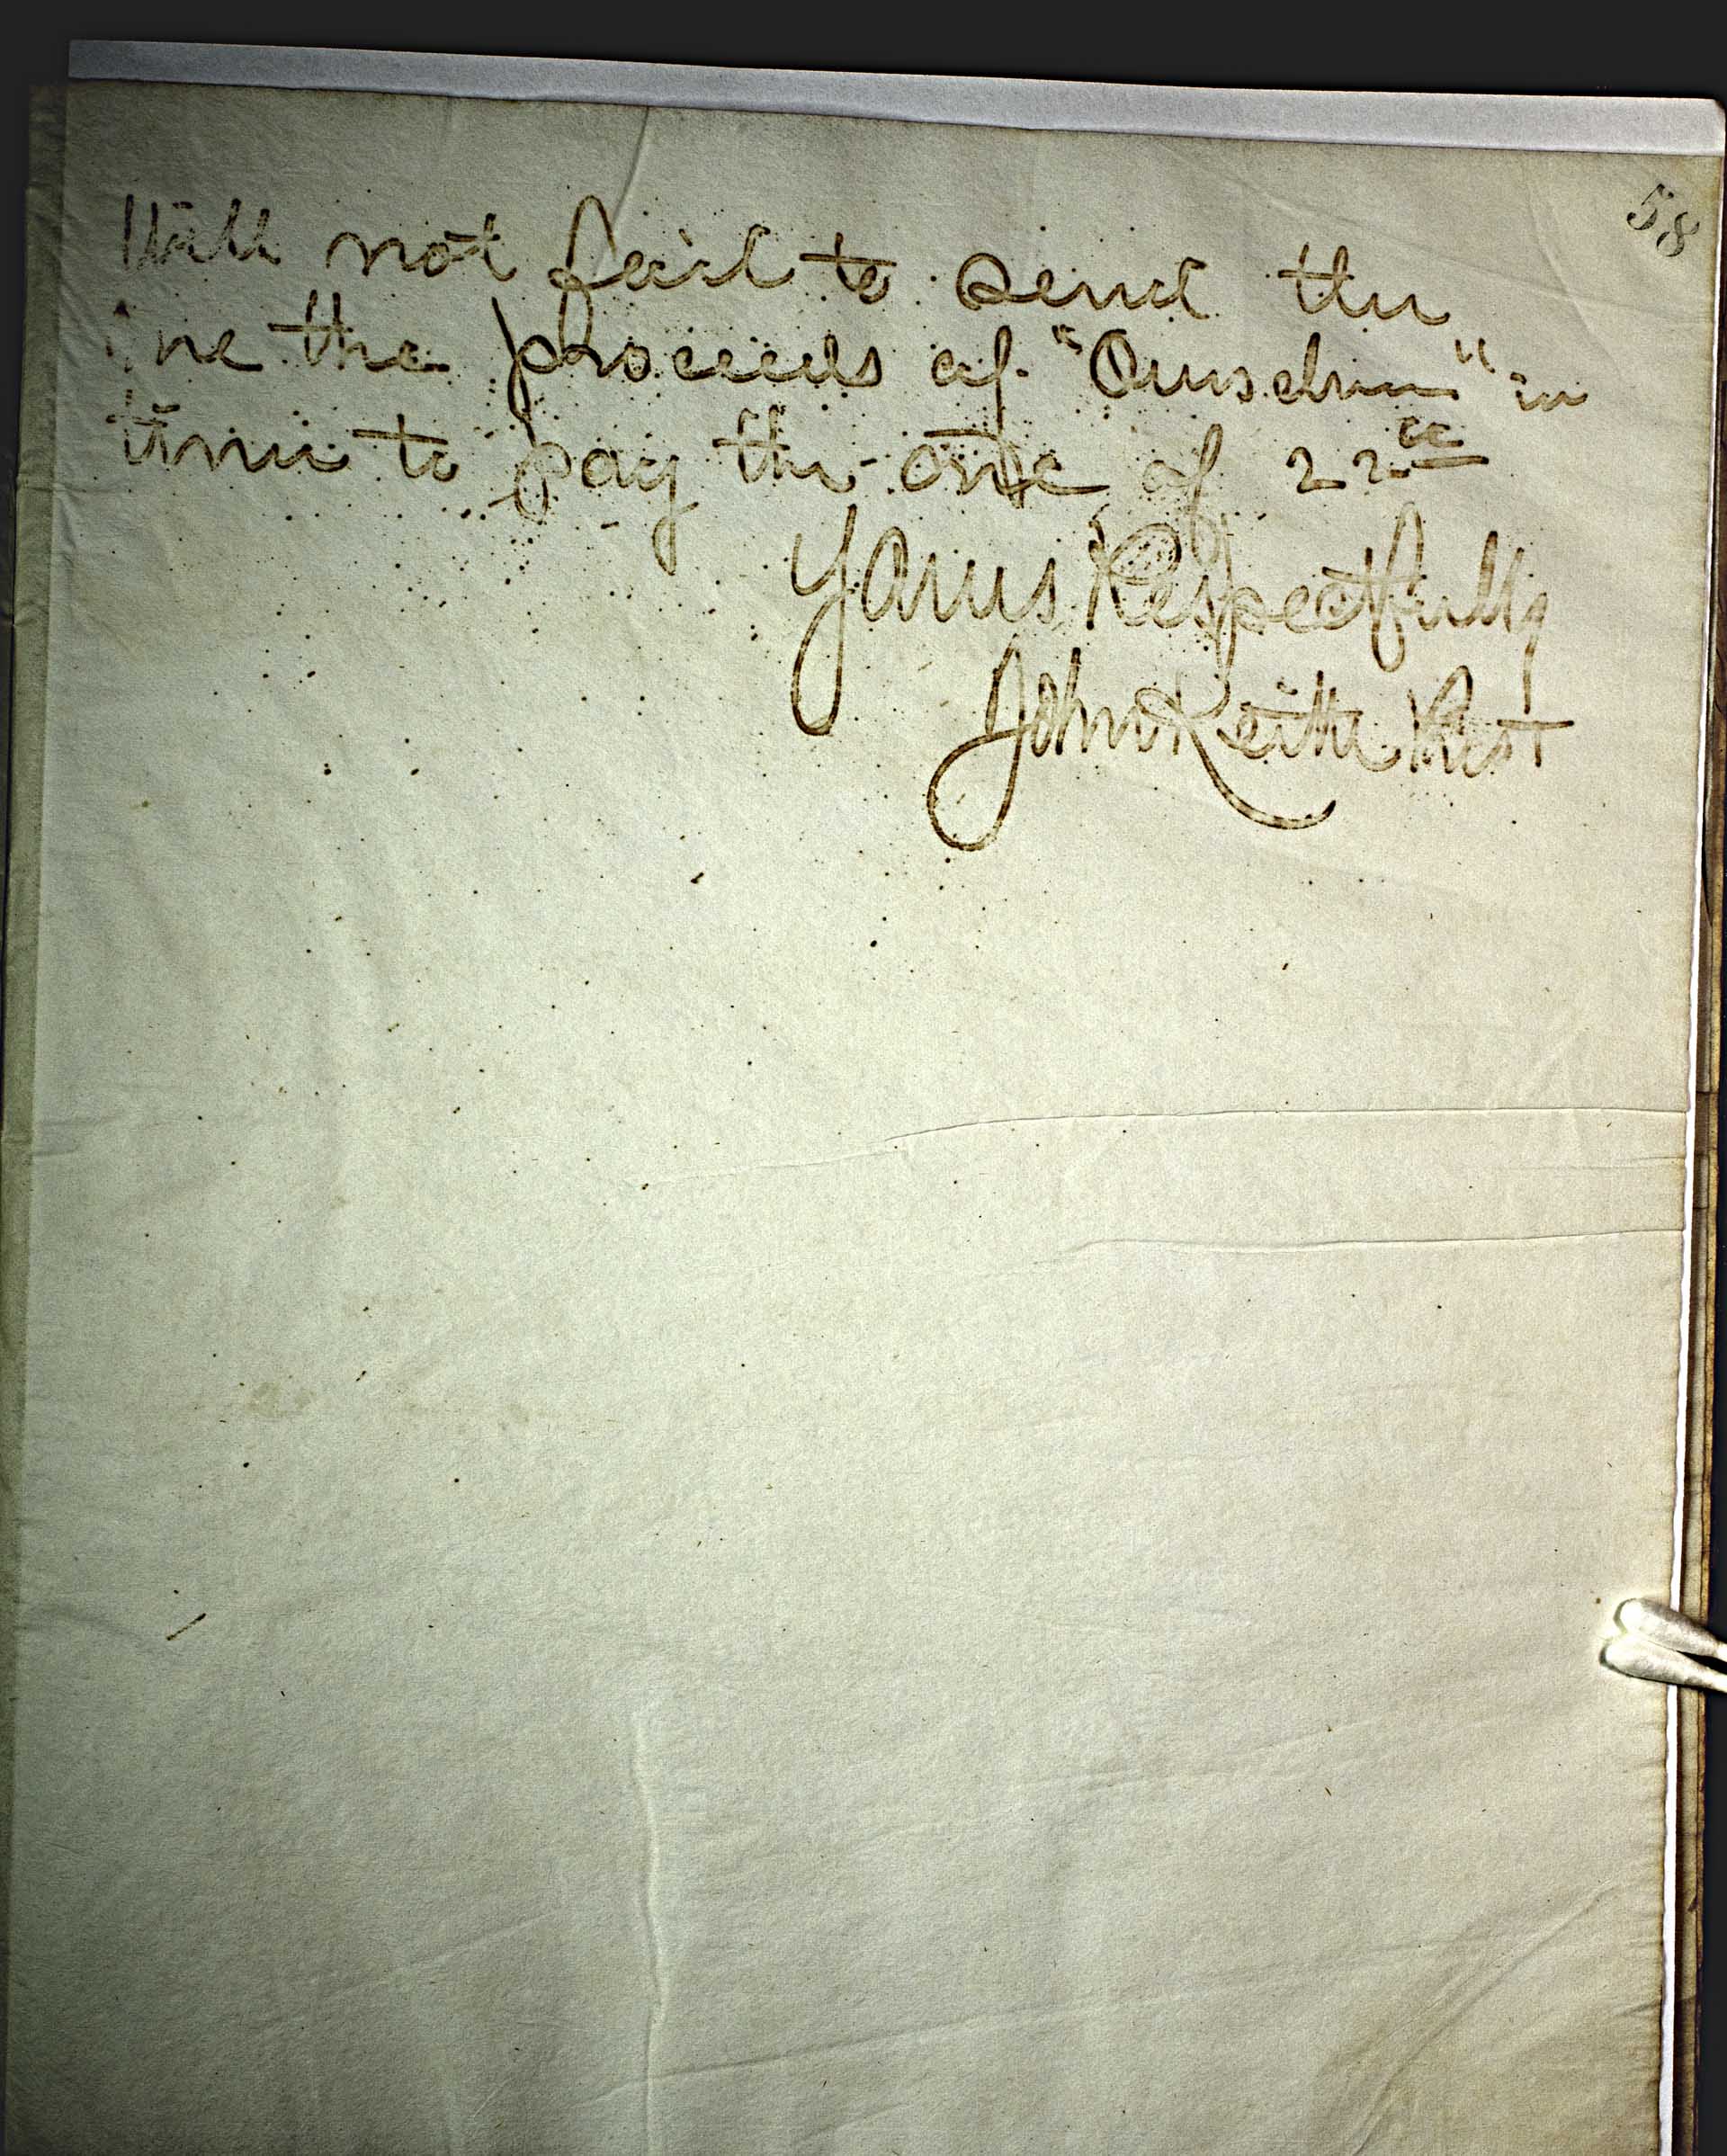 58
Will not fail to send the
me the proceeds of "
" in
time to pay the one of 22
Yours Respectfully
John Keith Rest